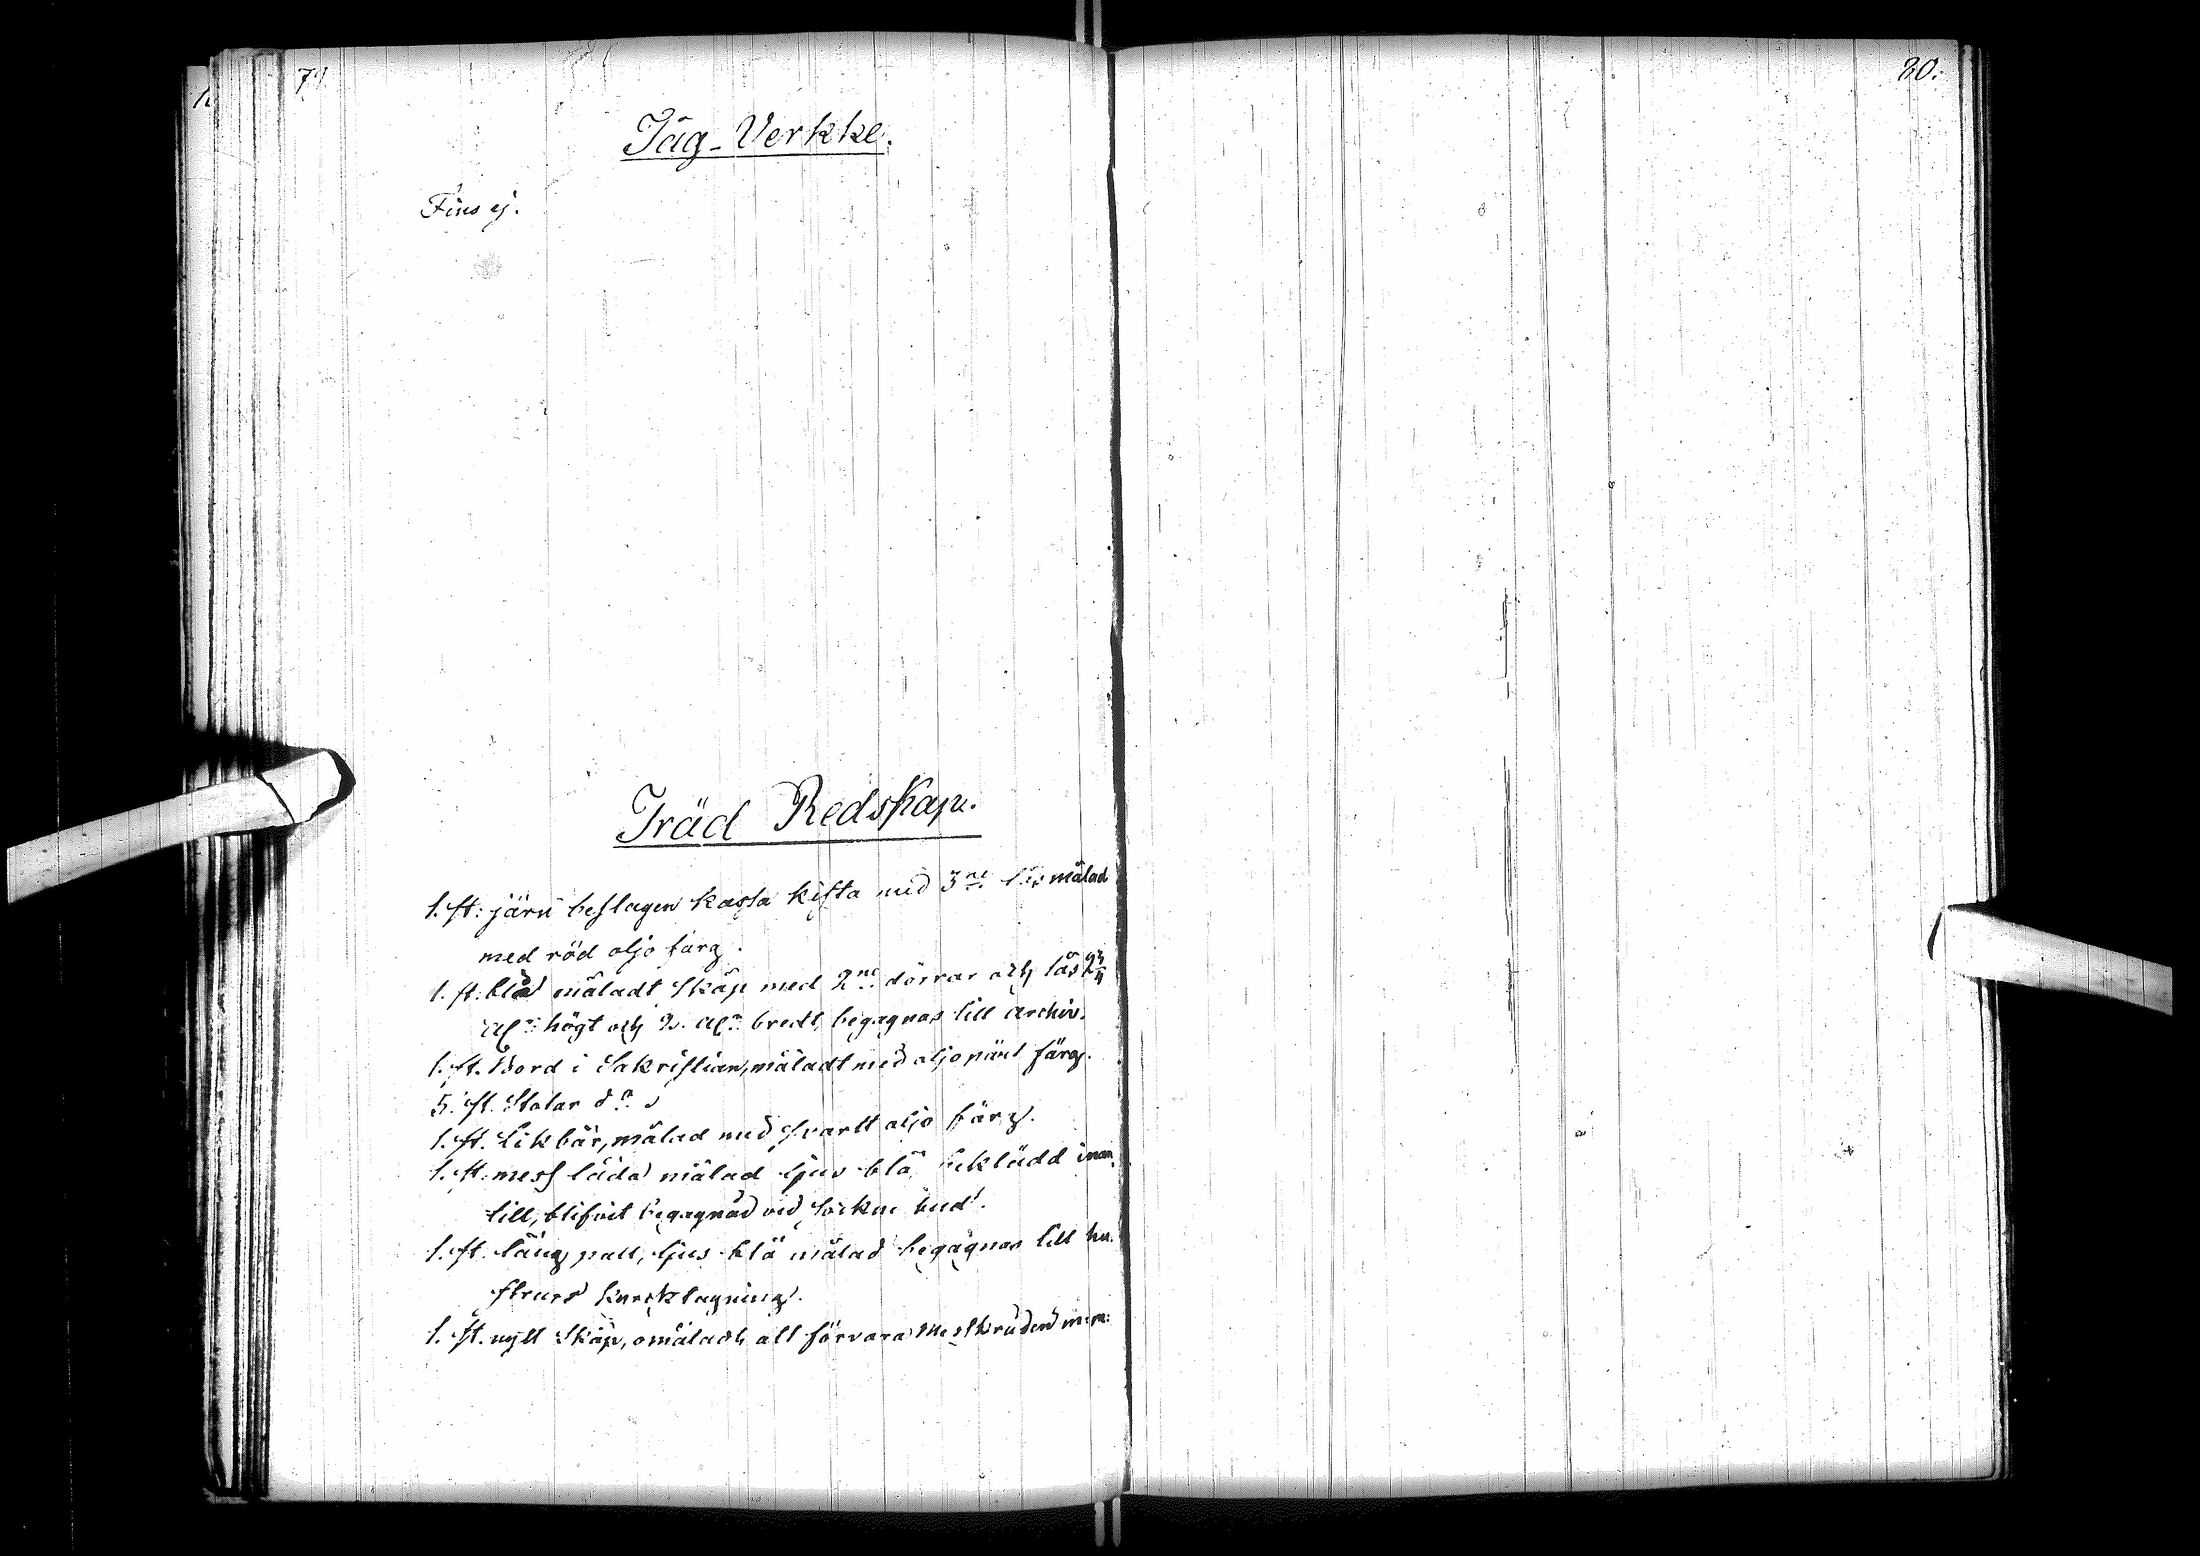 79.
Tåg-Verkke.
Fins ej.
Träd Redskap.
1. st: järn beslagen kassa kista med 3ne lås målad
med röd oljo färg.
1. st: blå måladt Skåp med 2ne dörrar och lås 2¾
Alr högt och 2. Alr bredt, begagnas till Archiv.
1. st. Bord i Sakristian, måladt med oljo färg.
5. st. Stolar do
1. st. Likbår, målad med svartt oljo färg.
1. st: mess låda målad ljus blå, beklädd inan,
till, blifvit begagnad vid Sockne bud.
1. st. lång pall, ljus blå målad begagnas till hu.
strurs kyrktagning.
1. st. nytt Skåp, omåladt, att förvara Messkruden m:m:
80.